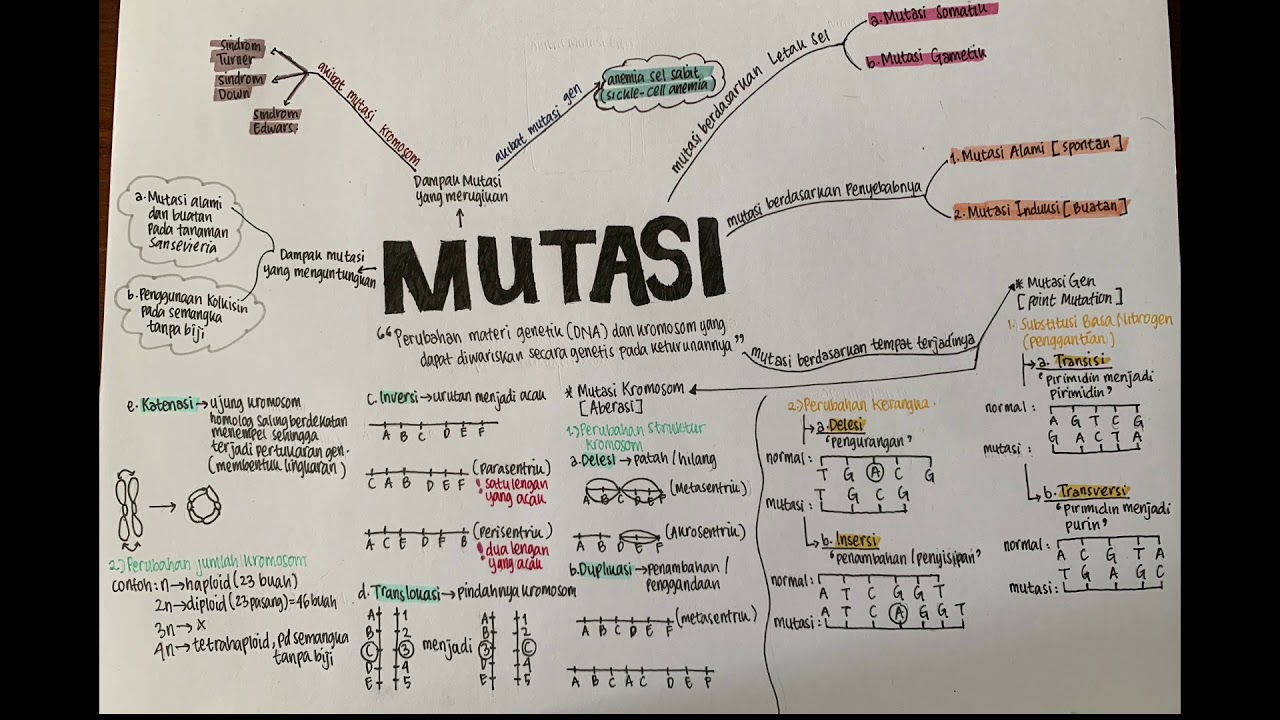 MUTASI
“Perubahan materi genetik (DNA) dan kromosom yang
dapat diwariskan secara genetis pada keturunannya”
Dampak Mutasi
yang merugikan
akibat mutasi kromosom
Sindrom
Turner
sindrom
Down
sindrom
Edwars.
akibat mutasi gen
anemia sel sabit
(sickle-cell anemia)
mutasi berdasarkan Letak Sel
a. Mutasi Somatik
b. Mutasi Gametik
mutasi berdasarkan Penyebabnya
1. Mutasi Alami [spontan]
2. Mutasi Induksi [Buatan]
Dampak mutasi
yang menguntungkan
a. Mutasi alami
dan buatan
pada tanaman
Sansevieria
b. Penggunaan Kolkisin
pada semangka
tanpa biji
mutasi berdasarkan tempat terjadinya
* Mutasi Gen
[point Mutation]
1. Substitusi Basa Nitrogen
(penggantian)
a. Transisi
“pirimidin menjadi
pirimidin”
normal:
A G T C G
G A C T A
mutasi:
b. Transversi
“pirimidin menjadi
purin”
normal:
A C G T A
T G A G C
mutasi:
2.) Perubahan Kerangka.
a. Delesi
“pengurangan”
normal:
T G A C G
T G C G
mutasi:
b. Insersi
“penambahan/penyisipan”
normal:
A T C G G T
A T C A G G T
mutasi:
* Mutasi Kromosom
[Aberasi]
1.) Perubahan struktur
kromosom
a. Delesi → patah/hilang
A B C D E F (Metasentrik)
A B D E F (Akrosentrik)
b. Duplikasi → penambahan/
penggandaan
A B C D E F (metasentrik)
A B C A C D E F
c. Inversi → urutan menjadi acak
A B C D E F
C A B D E F (parasentrik)
! satu lengan
yang acak
A C E D F B (Perisentrik)
! dua lengan
yang acak
d. Translokasi → pindahnya kromosom
A 1 A 1
B 2 B 2
C 3 menjadi 3 C
D 4 D 4
E 5 E 5
e. Katenasi → ujung kromosom
homolog saling berdekatan
menempel sehingga
terjadi pertukaran gen.
(membentuk lingkaran)
2.) Perubahan jumlah kromosom
contoh: n → haploid (23 buah)
2n → diploid (23 pasang) = 46 buah
3n → x
4n → tetrahaploid, pd semangka
tanpa biji